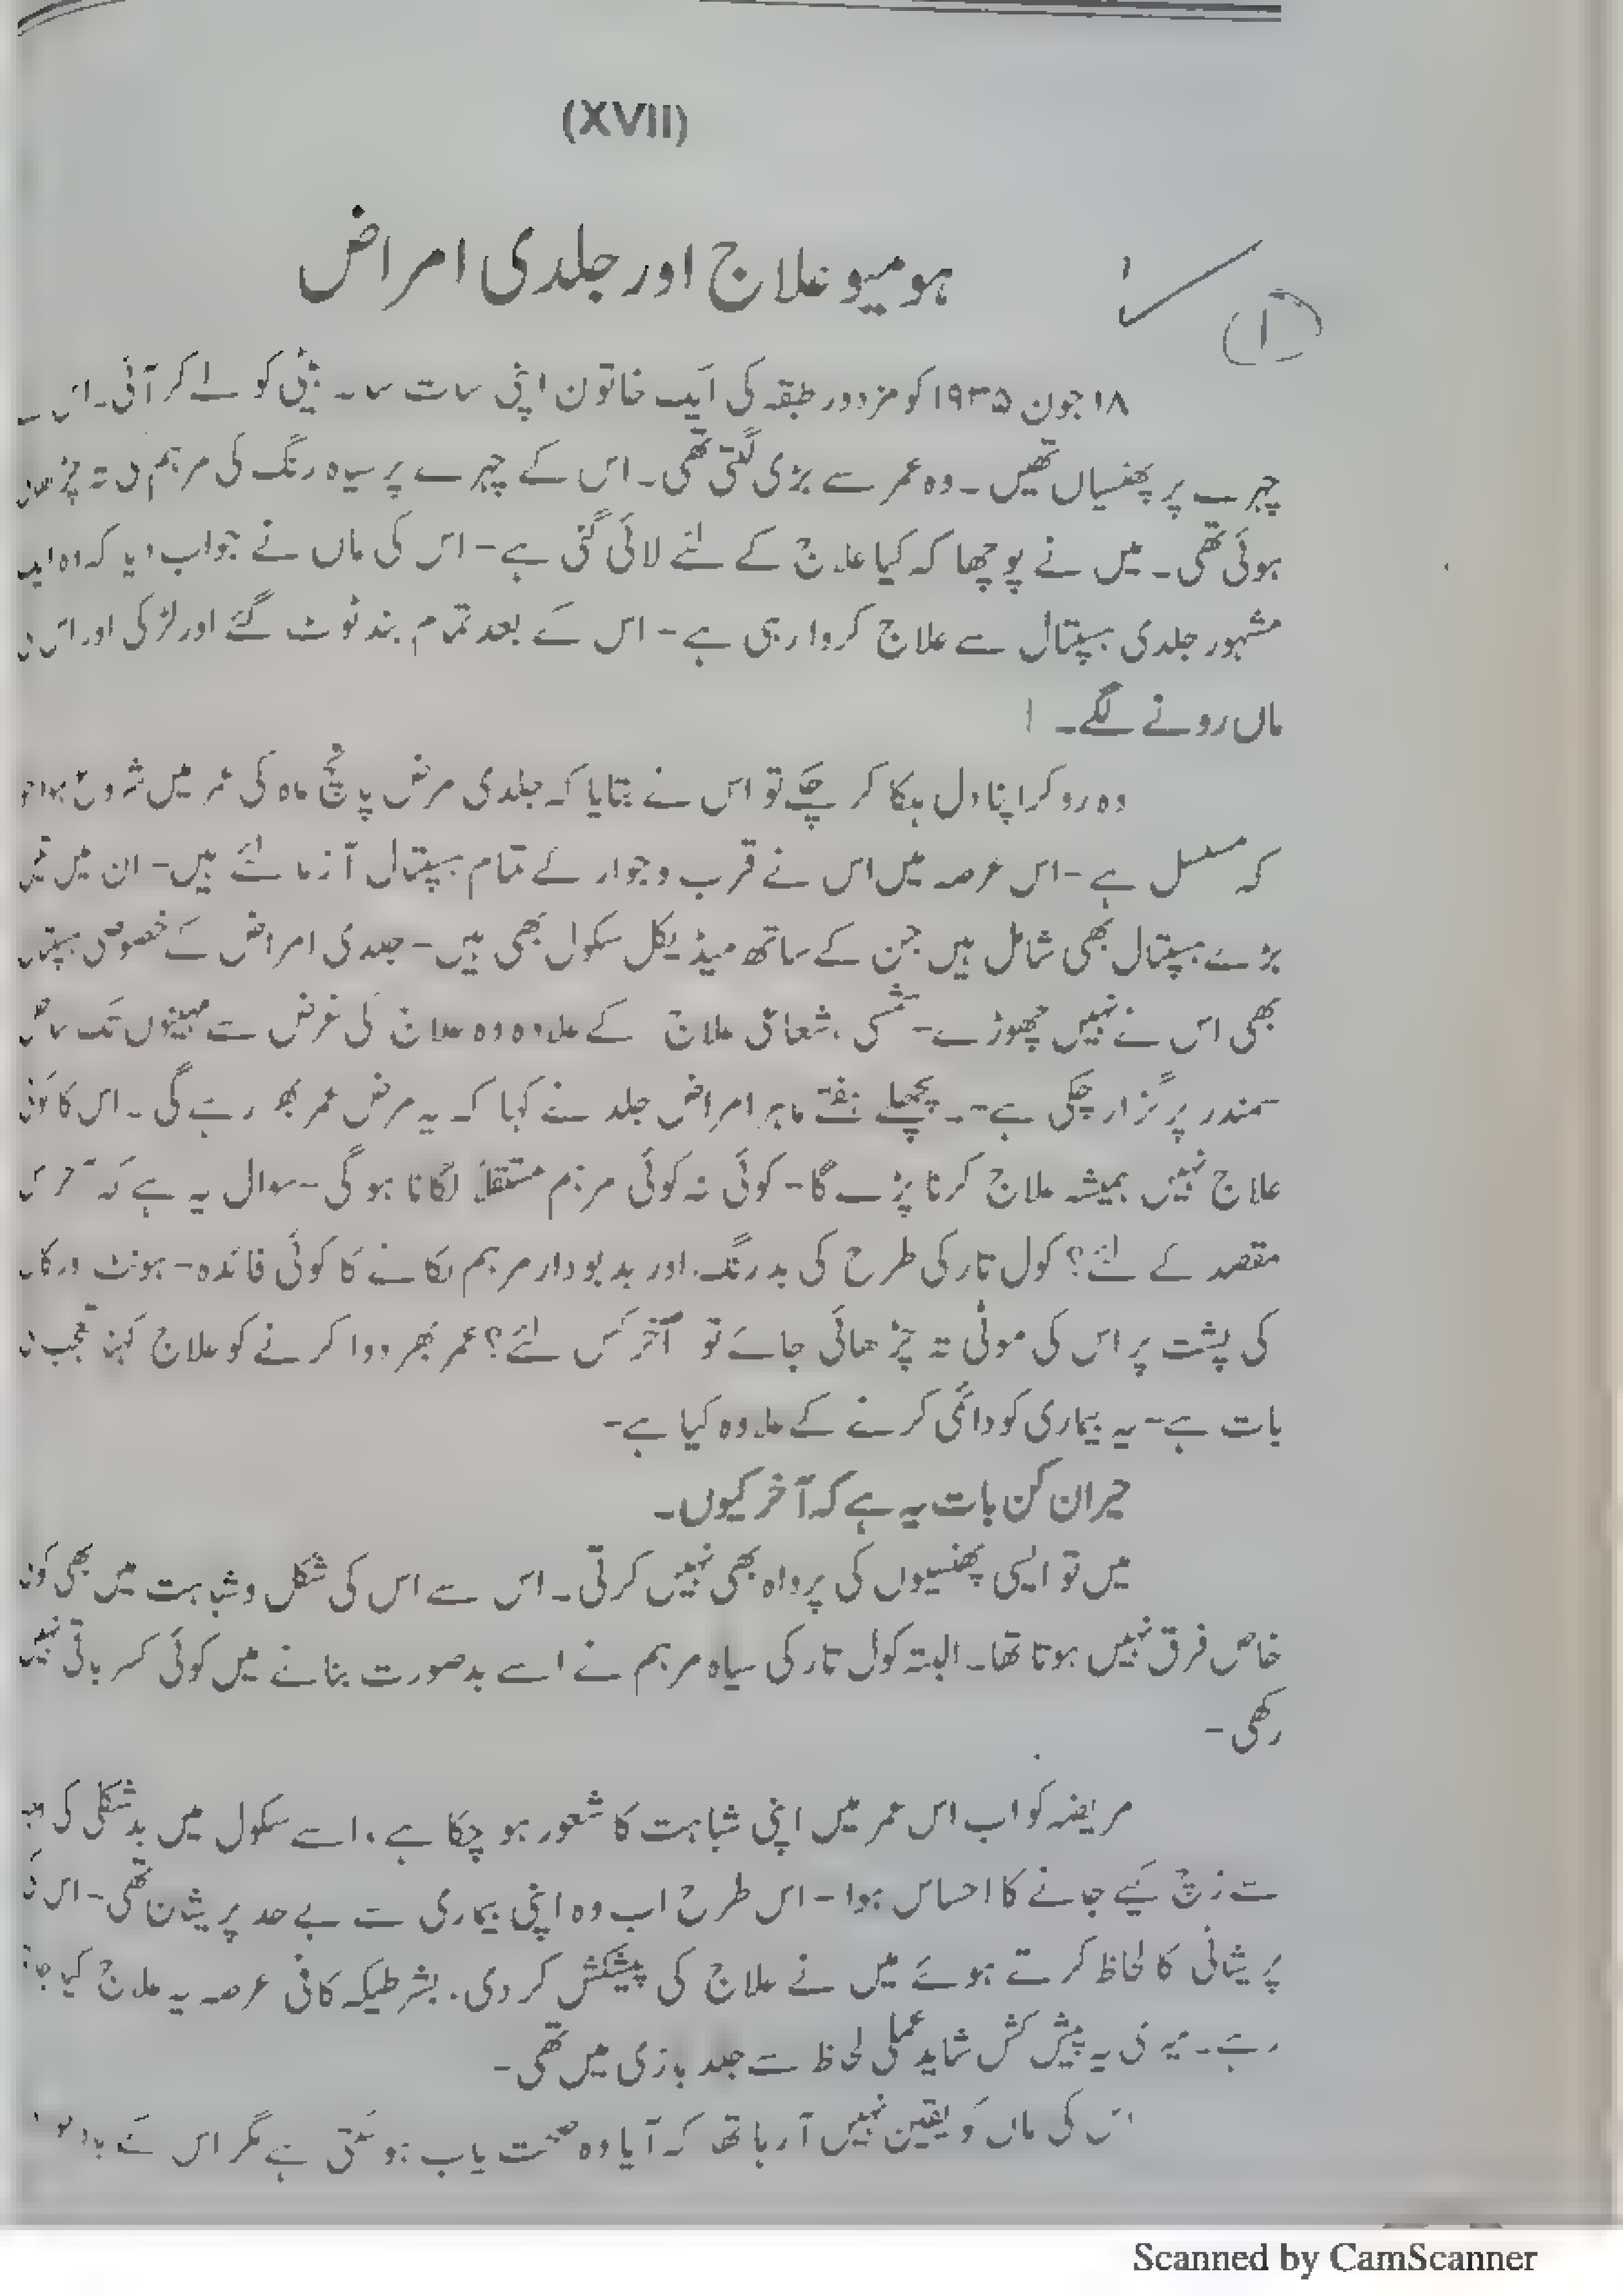 (XVII)
ہومیو علاج اور جلدی امراض
۱
۱۸ جون ۱۹۳۵ کو مزدور طبقہ کی ایک خاتون اپنی سات سالہ بیٹی کو لے کر آئی۔ اس
چہرے پر پھنسیاں تھیں۔ وہ عمر سے بڑی لگتی تھی۔ اس کے چہرے پر سیاہ رنگ کی مرہم کی تہ
ہوئی تھی۔ میں نے پوچھا کہ کیا علاج کے لئے لائی گئی ہے- اس کی ماں نے جواب دیا کہ وہ ایک
مشہور جلدی ہسپتال سے علاج کروا رہی ہے- اس کے بعد تمام بند ٹوٹ گئے اور لڑکی اور اس کی
ماں رونے لگے۔
وہ رو کر اپنا دل ہلکا کر چکے تو اس نے بتایا کہ جلدی مرض پانچ ماہ کی عمر میں شروع ہوا
کہ مسلسل ہے- اس عرصہ میں اس نے قرب و جوار کے تمام ہسپتال آزمائے ہیں- ان میں تین
بڑے ہسپتال بھی شامل ہیں جن کے ساتھ میڈیکل سکول بھی ہیں- جلدی امراض کے خصوصی ہسپتال
بھی اس نے نہیں چھوڑے- شمسی شعائی علاج کے علاوہ وہ علاج کی غرض سے مہینوں تک ساحل
سمندر پر گزار چکی ہے-۔ پچھلے ہفتے ماہر امراض جلد نے کہا کہ یہ مرض عمر بھر رہے گی۔ اس کا کوئی
علاج نہیں ہمیشہ علاج کرنا پڑے گا- کوئی نہ کوئی مرہم مستقلاً لگانا ہو گی- سوال یہ ہے کہ آخر کس
مقصد کے لئے؟ کول تار کی طرح کی بدرنگ اور بدبودار مرہم لگانے کا کوئی فائدہ- ہونٹ اور کان
کی پشت پر اس کی موٹی تہ چڑھائی جائے تو آخر کس لئے؟ عمر بھر دوا کرنے کو علاج کہنا تعجب کی
بات ہے- یہ بیماری کو دائمی کرنے کے علاوہ کیا ہے-
حیران کن بات یہ ہے کہ آخر کیوں۔
میں تو ایسی پھنسیوں کی پرواہ بھی نہیں کرتی۔ اس سے اس کی شکل و شباہت میں بھی کوئی
خاص فرق نہیں ہوتا تھا۔ البتہ کول تار کی سیاہ مرہم نے اسے بدصورت بنانے میں کوئی کسر باقی نہیں
رکھی-
مریضہ کو اب اس عمر میں اپنی شباہت کا شعور ہو چکا ہے۔ اسے سکول میں بدشکلی کی
سے زچ کیے جانے کا احساس ہوا- اس طرح اب وہ اپنی بیماری سے بے حد پریشان تھی- اس کی
پریشانی کا لحاظ کرتے ہوئے میں نے علاج کی پیشکش کر دی۔ بشرطیکہ کافی عرصہ یہ علاج کیا جاتا
رہے۔ میری یہ پیش کش شاید عملی لحاظ سے جلد بازی میں تھی-
اس کی ماں کو یقین نہیں آ رہا تھا کہ آیا وہ صحت یاب ہو سکتی ہے مگر اس کے
Scanned by CamScanner